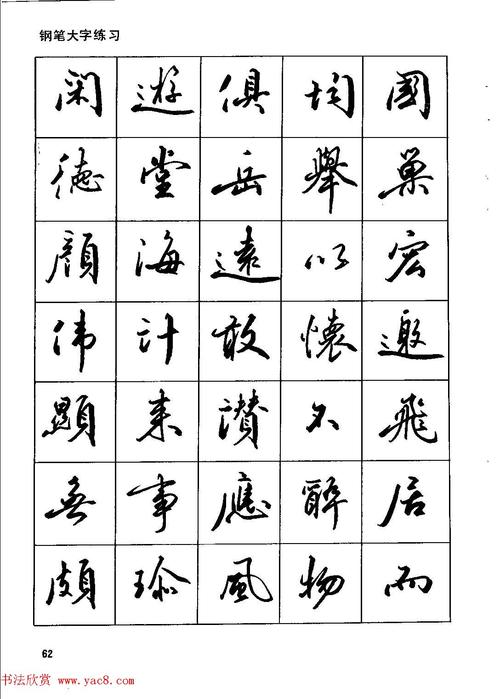 钢笔大字练习
闲 遊 俱 均 國
德 堂 岳 舉 巢
顔 海 遠 以 宏
偉 計 敢 懷 邀
顯 来 讃 不 飛
無 事 應 醉 居
頗 珍 風 物 而
62
书法欣赏 www.yac8.com